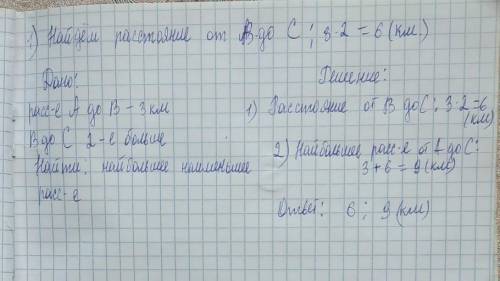 1) Найдём расстояние от В до С; 3·2=6 (км)
Дано:
расс-е А до В - 3 км
В до С 2-е больше
Найти: наибольшее наименьшее
расс-е
Решение:
1) Расстояние от В до С: 3·2=6
(км)
2) Наибольшее расс-е от А до С:
3+6=9 (км)
Ответ: 6; 9 (км)